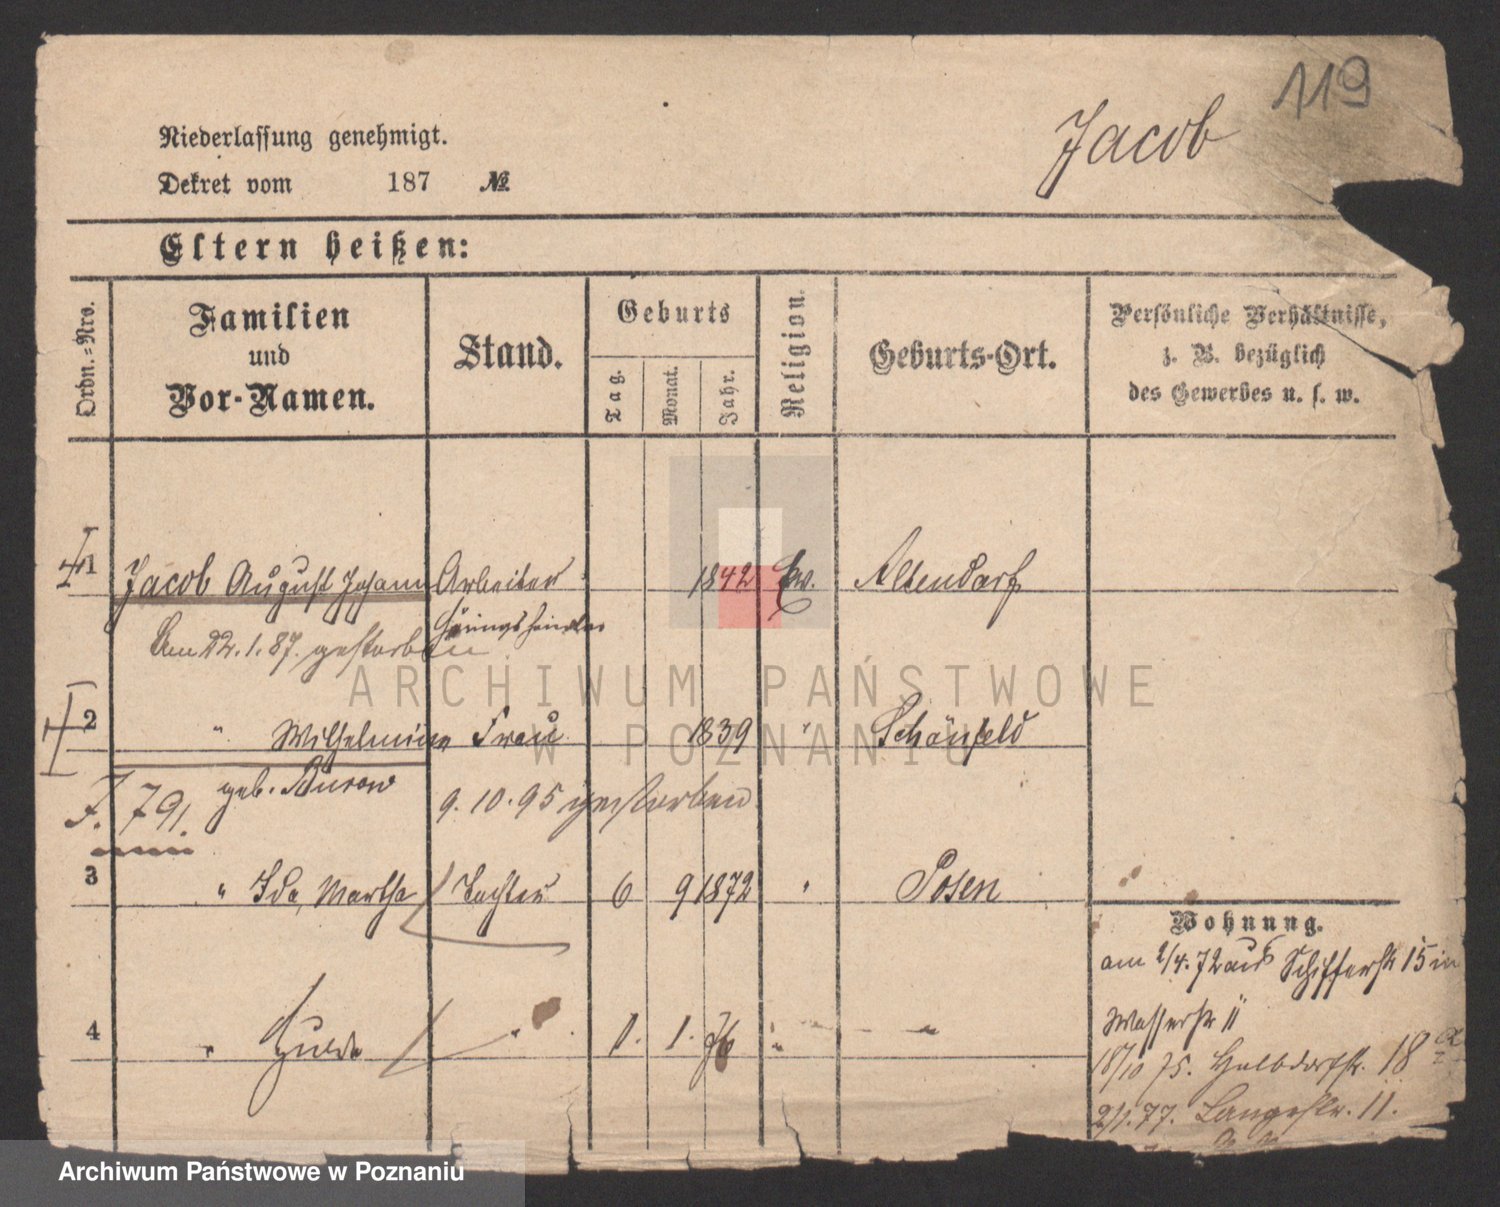 119
Jacob
Niederlassung genehmigt.
Dekret vom 187 №
Eltern heißen:
Ordn.=Nro.
Familien
und
Vor-Namen.
Stand.
Geburts
Tag.
Monat.
Jahr.
Religion.
Geburts-Ort.
Persönliche Verhältnisse,
z. B. bezüglich
des Gewerbes u. s. w.
1 Jacob August Johann Arbeiter 1842 Ev. Altendorf
Häringshändler
Am 22.1.87. gestorben
2 " Wilhelmine Frau 1839 " Schönfeld
geb. Burow
9.10.95 gestorben
F. 791
3 " Ida, Martha Tochter 6 9 1872 " Posen
4 " Hulda " 1. 1. 76 " "
Wohnung.
am 2/4.72 aus Schifferstr 15 in
Wasserstr 11
18/10 75. Halbdorfstr. 18 a
2/1.77. Langestr. 11.
ARCHIWUM PAŃSTWOWE
W POZNANIU
Archiwum Państwowe w Poznaniu